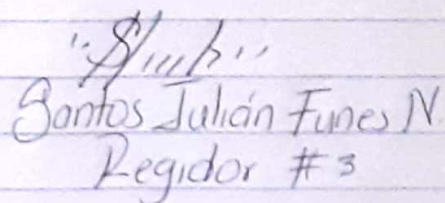 Santos Julián Funes N.
Regidor # 3